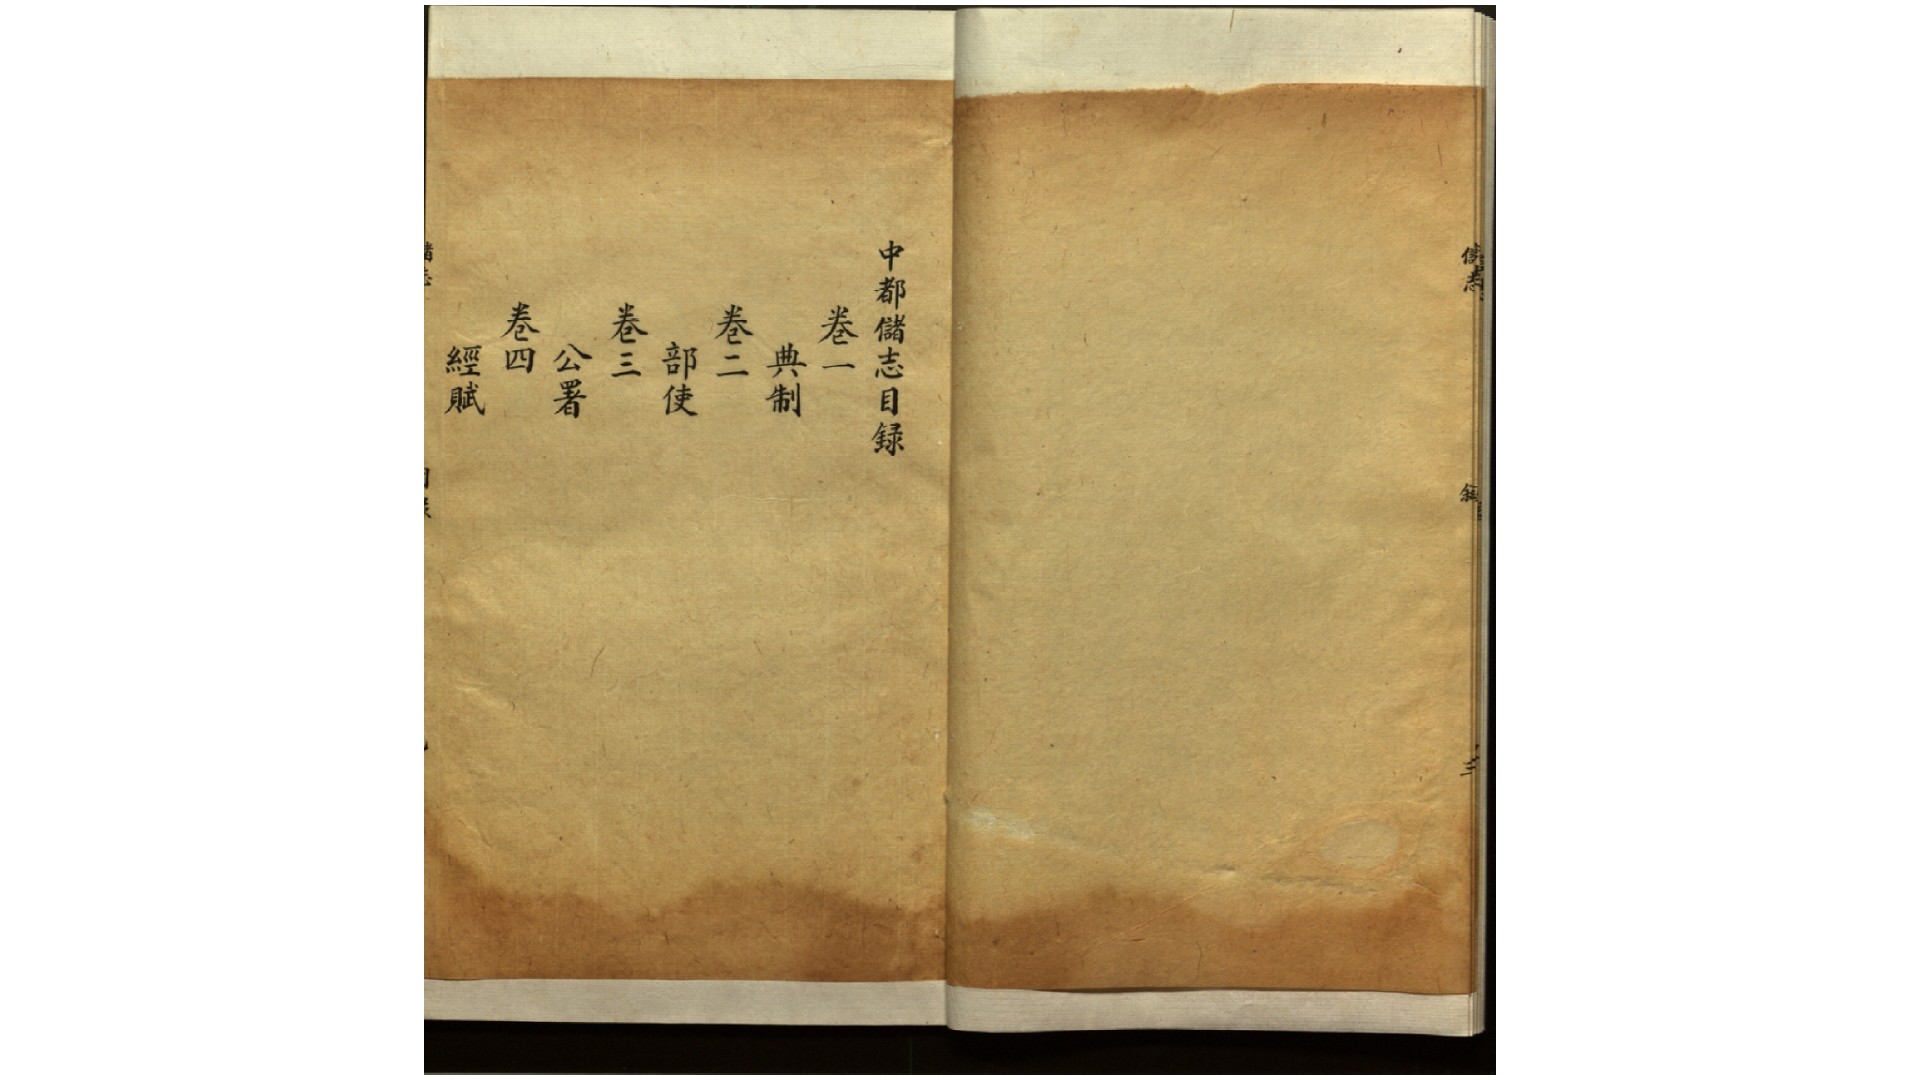 儲志
三
中都儲志目録
卷一
典制
卷二
部使
卷三
公署
卷四
經賦